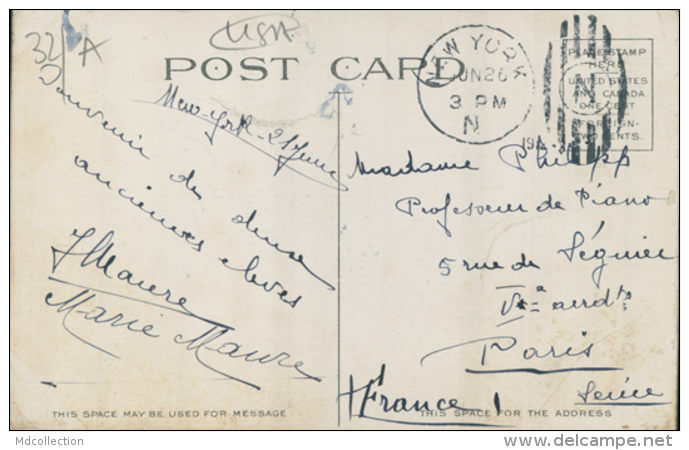 32 A
USA
POST CARD
NEW YORK
JUN 26
3 PM
N
191
N
PLACE STAMP
HERE
UNITED STATES
AND CANADA
ONE CENT
FOREIGN-
TWO CENTS.
New-York - 21 June
Souvenir de deux
anciennes élèves
J Maure
Marie Maure
Madame Philipp
Professeur de Piano
5 rue de Séguier
Paris
Seine
France
THIS SPACE MAY BE USED FOR MESSAGE
THIS SPACE FOR THE ADDRESS
Mdcollection
delcampe.net